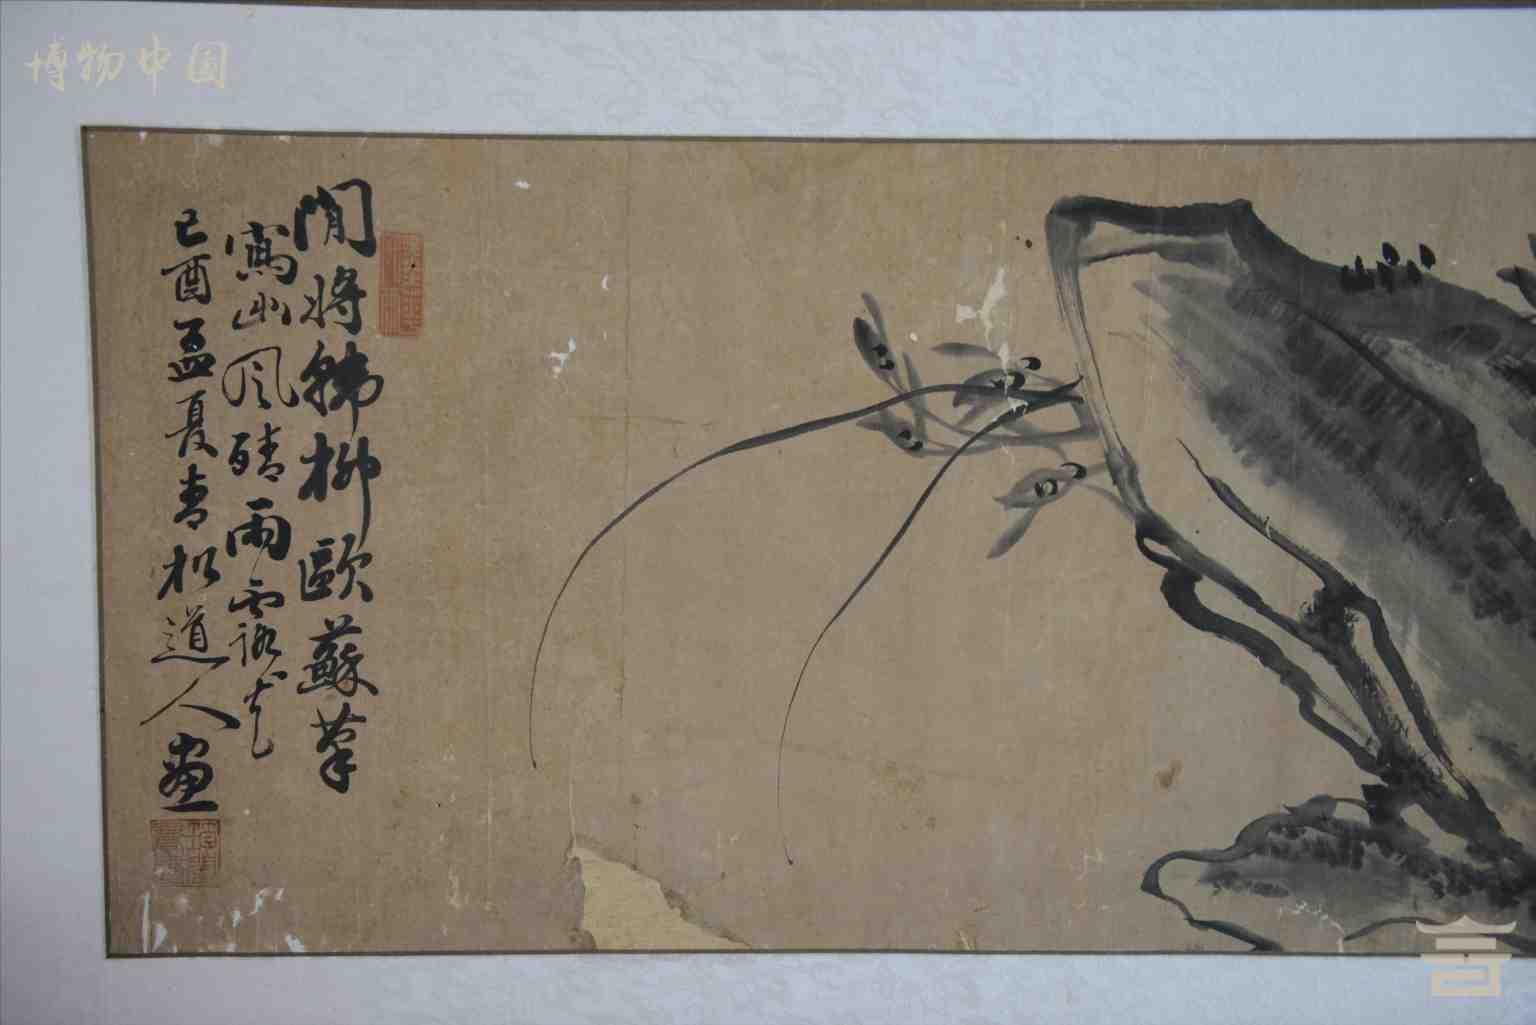 博物中国
閒將韓柳歐蘇筆
寫出風晴雨露
己酉孟夏青松道人畫